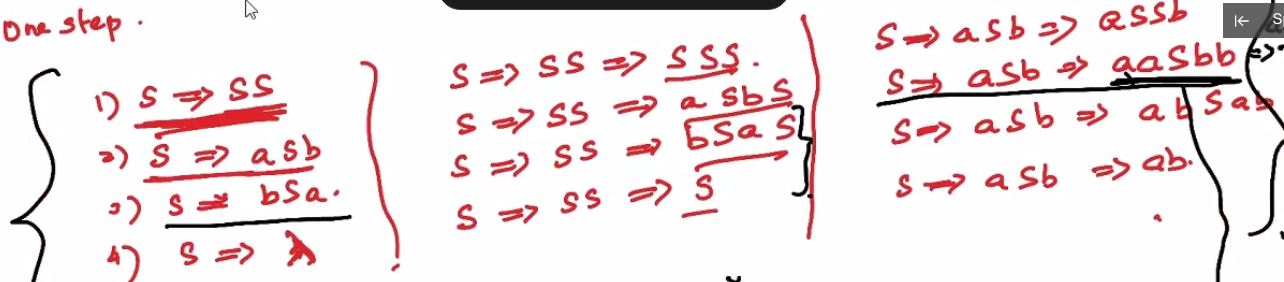 One step.
1) S => SS
2) S => aSb
3) S => bSa.
4) S => λ
S => SS => SSS.
S => SS => aSbS
S => SS => bSaS
S => SS => S
S => aSb => aSSb
S => aSb => aaSbb =>
S => aSb => abSa
S => aSb => ab.